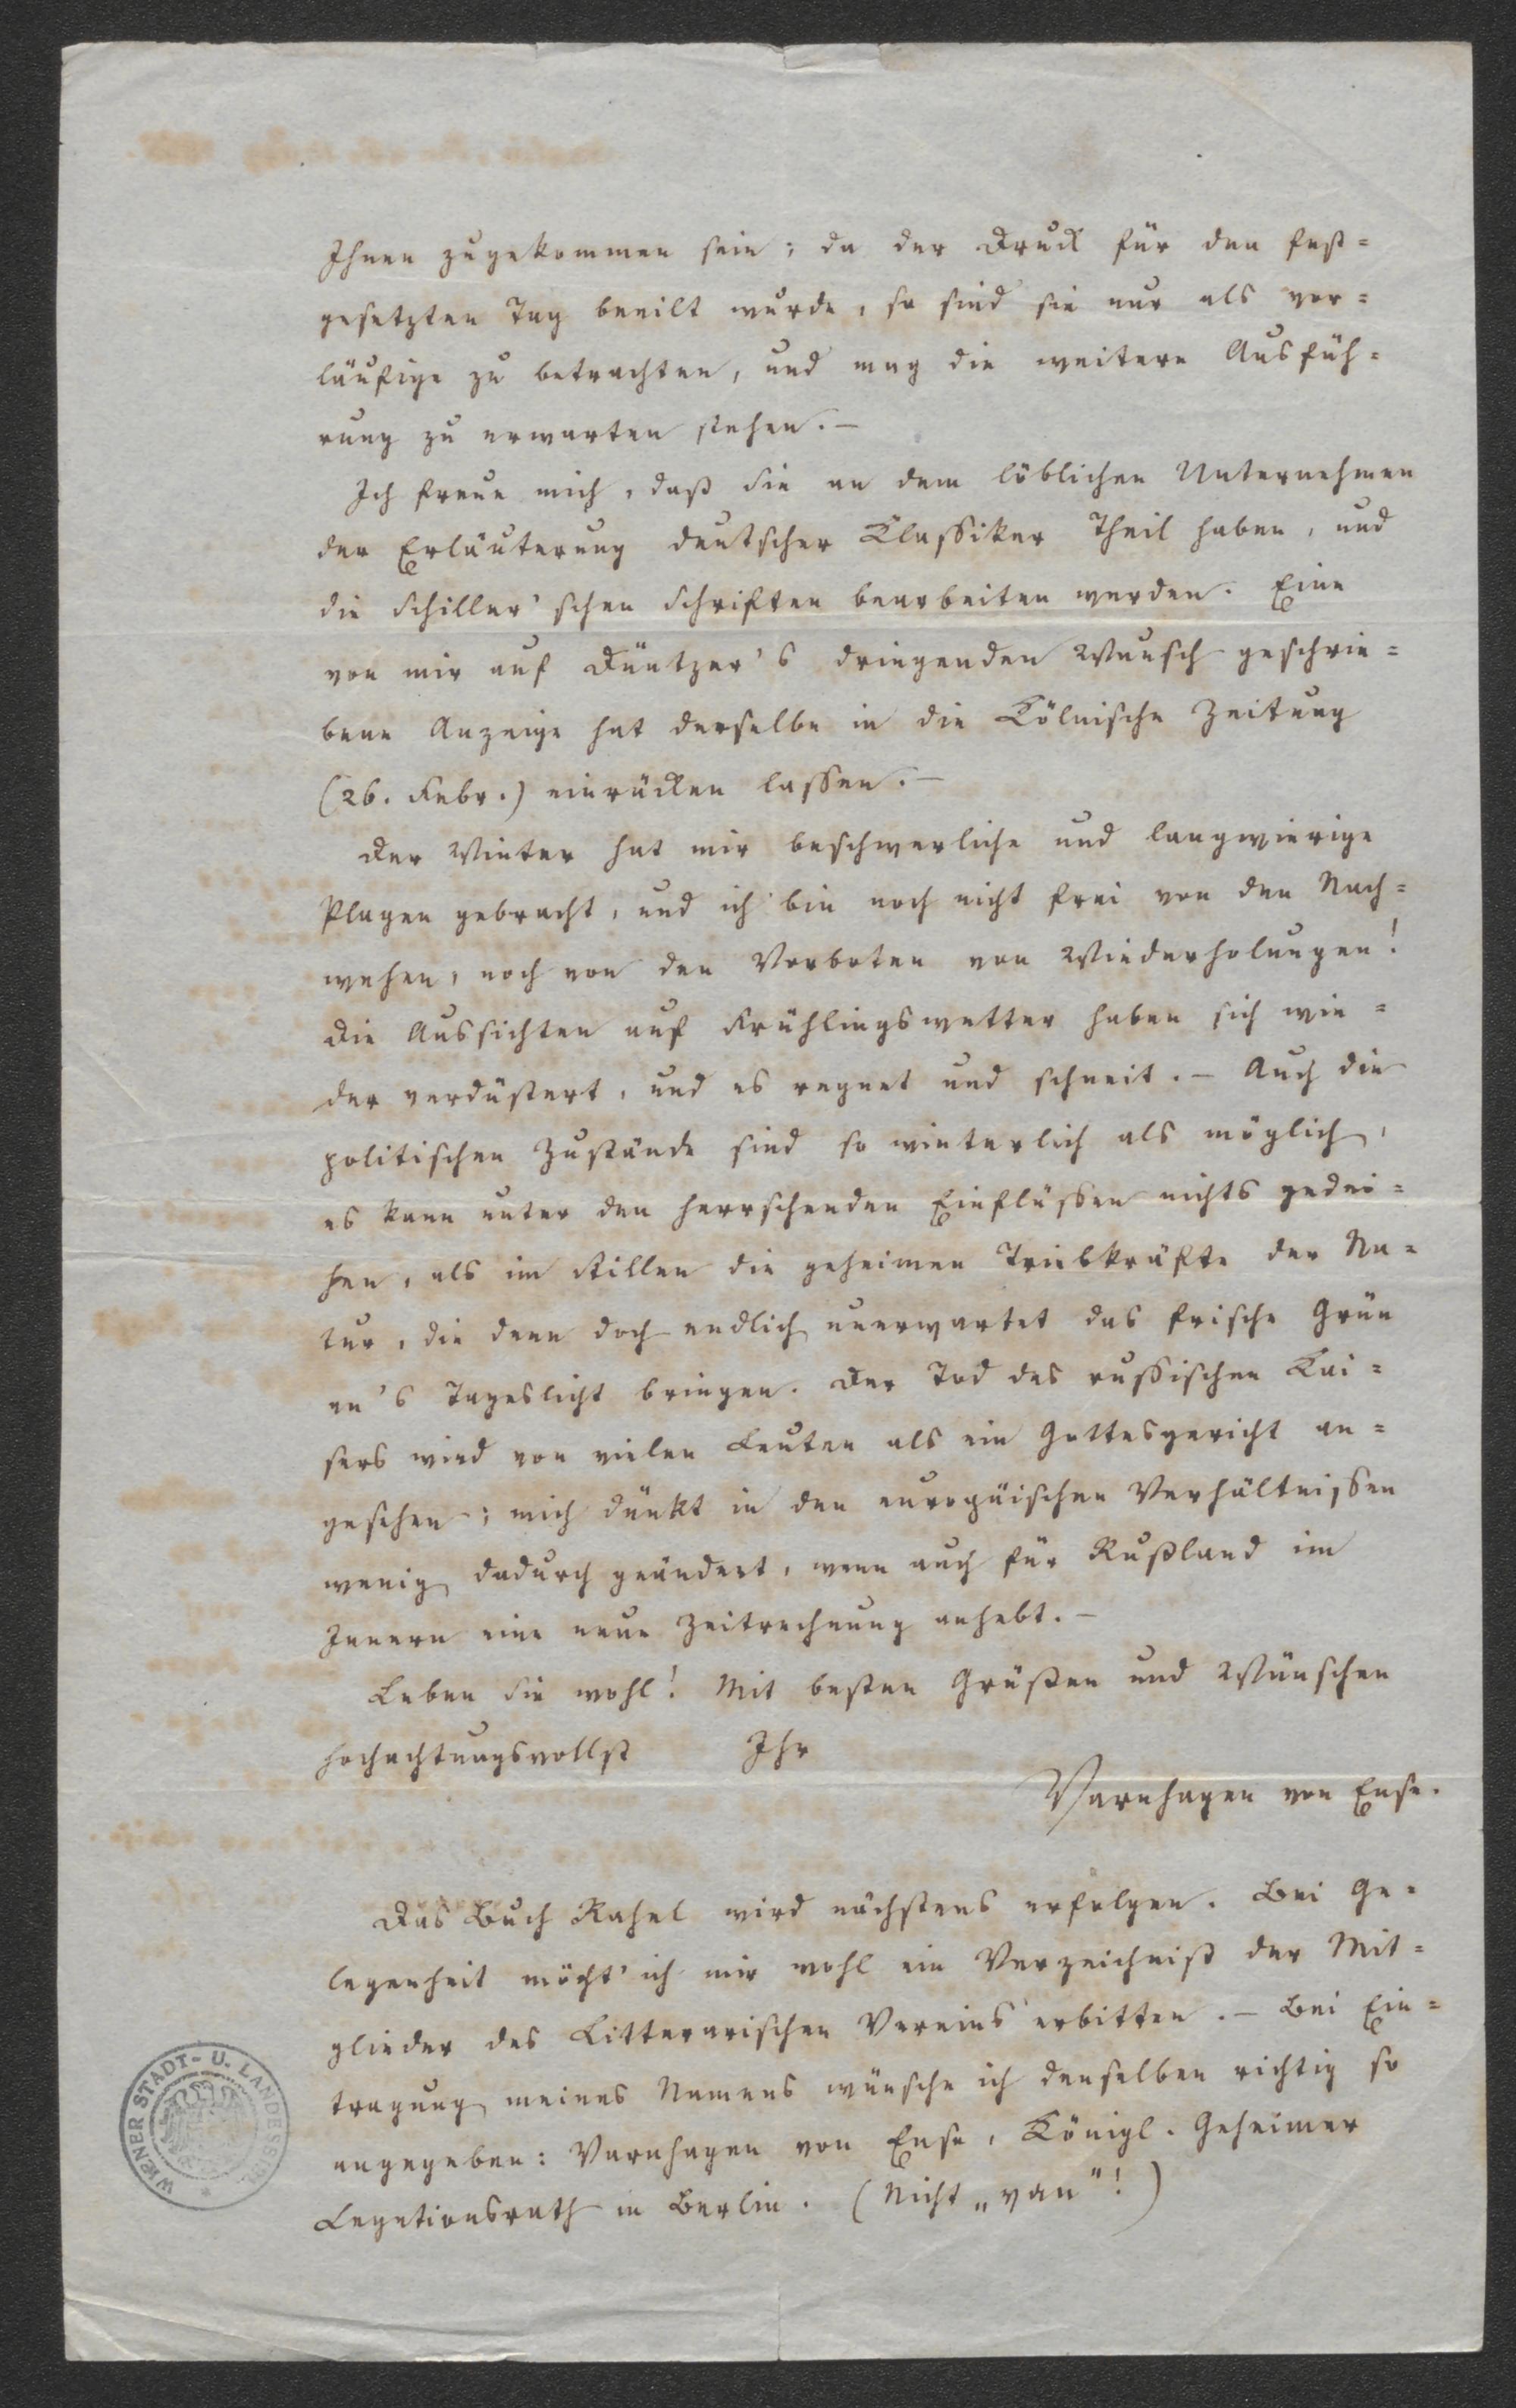 Ihnen zugekommen sein; da der Druck für den fest=
gesetzten Tag beeilt wurde, so sind sie nur als vor=
läufige zu betrachten, und mag die weitere Ausfüh=
rung zu erwarten stehen. –
Ich freue mich, daß Sie an dem löblichen Unternehmen
der Erläuterung deutscher Klassiker Theil haben, und
die Schiller'schen Schriften bearbeiten werden. Eine
von mir auf Düntzer's dringenden Wunsch geschrie=
bene Anzeige hat derselbe in die Kölnische Zeitung
(26. Febr.) einrücken lassen. –
Der Winter hat mir beschwerliche und langwierige
Plagen gebracht, und ich bin noch nicht frei von den Nach=
wehen, noch von den Vorboten von Wiederholungen!
Die Aussichten auf Frühlingswetter haben sich wie=
der verdüstert, und es regnet und schneit. – Auch die
politischen Zustände sind so winterlich als möglich,
es kann unter den herrschenden Einflüssen nichts gedei=
hen, als im Stillen die geheimen Triebkräfte der Na=
tur, die denn doch endlich unerwartet das frische Grün
an's Tageslicht bringen. Der Tod des russischen Kai=
sers wird von vielen Leuten als ein Gottesgericht an=
gesehen; mich dünkt in den europäischen Verhältnissen
wenig dadurch geändert, wenn auch für Rußland im
Innern eine neue Zeitrechnung anhebt. –
Leben Sie wohl! Mit besten Grüßen und Wünschen
hochachtungsvollst Ihr
Varnhagen von Ense.
Das Buch Rahel wird nächstens erfolgen. Bei Ge=
legenheit möcht' ich mir wohl ein Verzeichniß der Mit=
glieder des Litterarischen Vereins erbitten. – Bei Ein=
tragung meines Namens wünsche ich denselben richtig so
angegeben: Varnhagen von Ense, Königl. Geheimer
Legationsrath in Berlin. (Nicht „van"!)
WIENER STADT- U. LANDESBIBL.